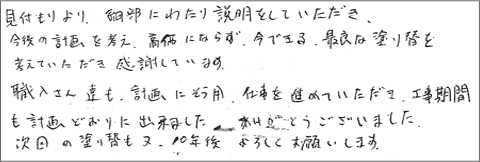 見付もりより、細部にわたり説明をしていただき、
今後の計画を考え、高価にならず、今できる、最良な塗り替を
考えていただき感謝しています。
職人さん達も、計画にそう用、仕事を進めていただき、工事期間
も計画どおりに出来ました ありがとうございました。
次回の塗り替も又、10年後 よろしくお願いします。